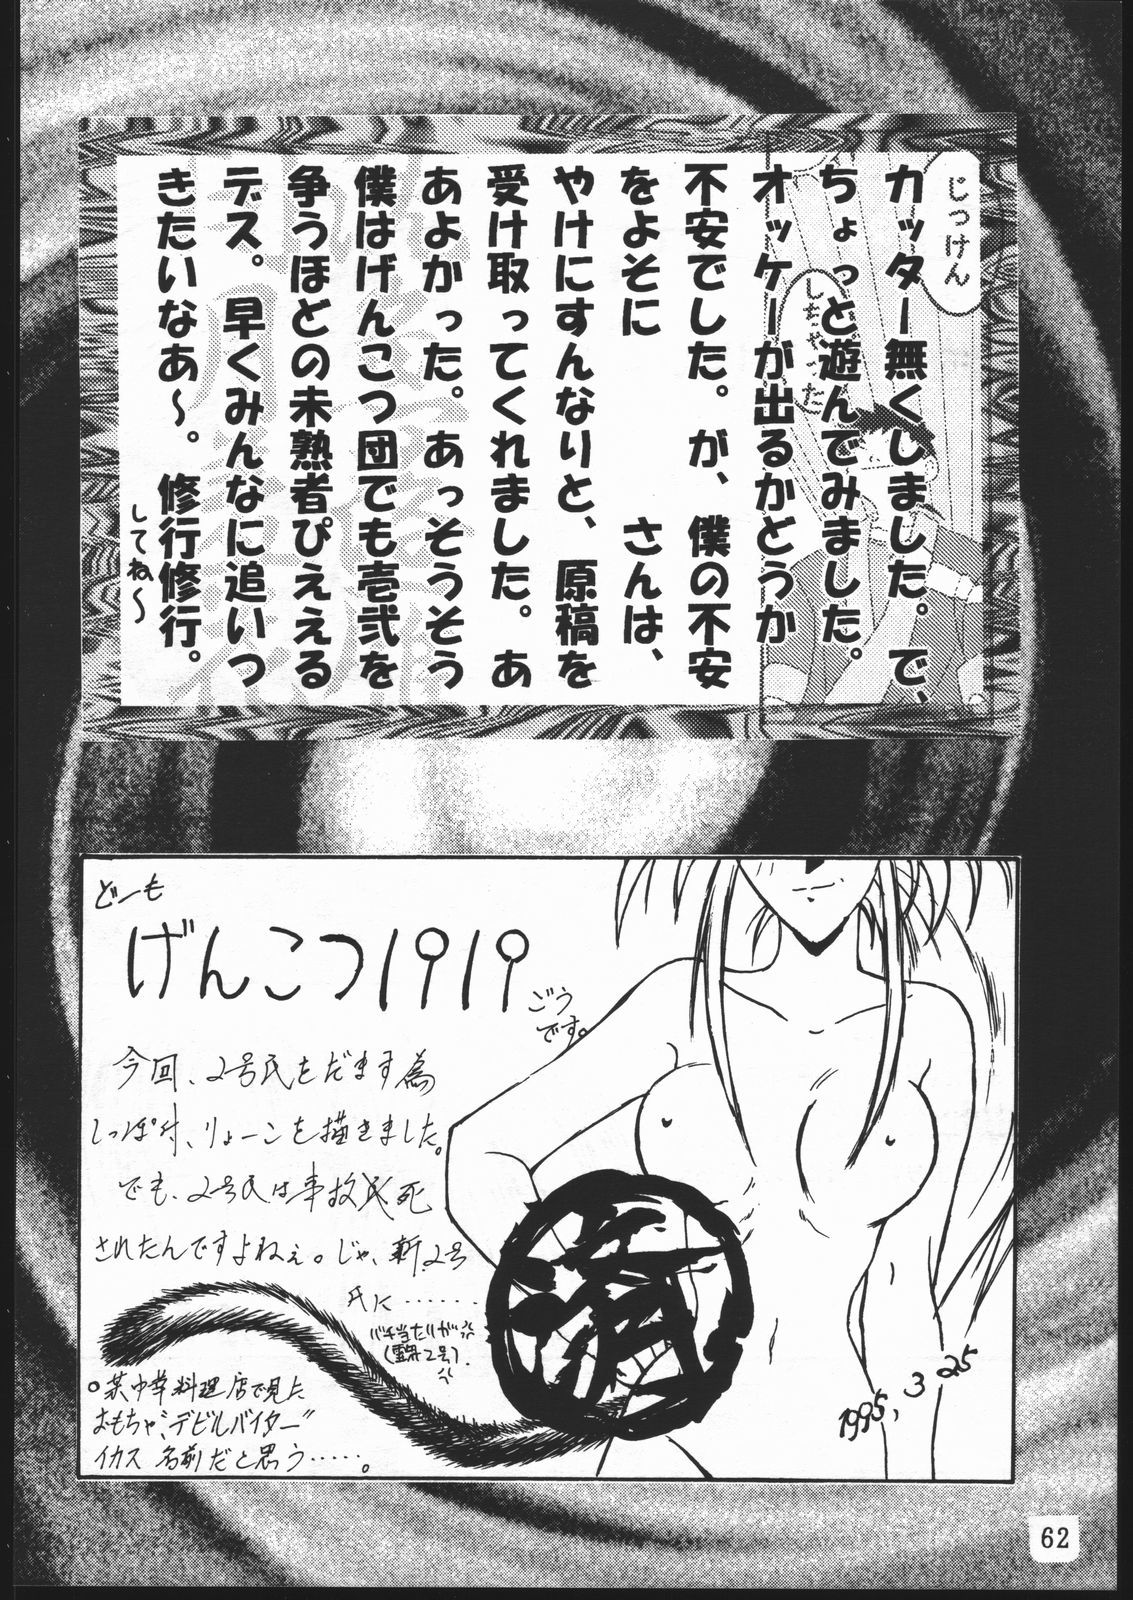 じっけん
しちゃった
カッター無くしました。で、
ちょっと遊んでみました。
オッケーが出るかどうか
不安でした。が、僕の不安
をよそに　　　さんは、
やけにすんなりと、原稿を
受け取ってくれました。あ
あよかった。あっそうそう
僕はげんこつ団でも壱弐を
争うほどの未熟者ぴええる
デス。早くみんなに追いつ
きたいなあ〜。修行修行。
してね〜
どーも
げんこつ1919
ごう
です。
今回、2号氏をだます為
しっぽ付、りょーこを描きました。
でも、2号氏は事故死
されたんですよねぇ。じゃ、新2号
氏に……
バチ当たりが
1995,3,25
。某中華料理店で見た
おもちゃ“デビルバイター”
イカス名前だと思う……。
62